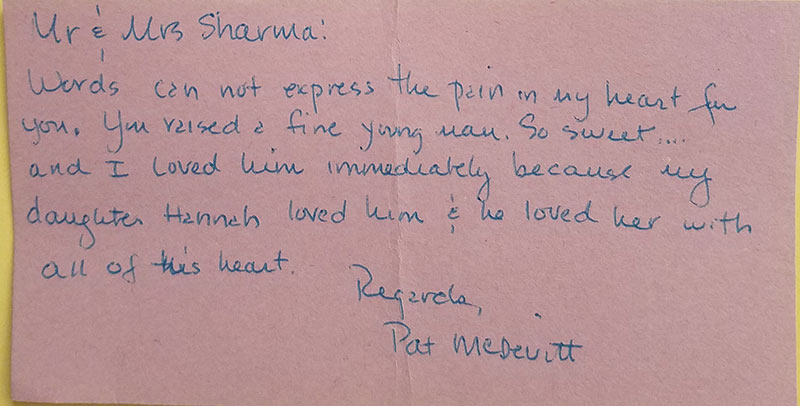 Mr & Mrs Sharma:
Words can not express the pain in my heart for
you. You raised a fine young man. So sweet....
and I loved him immediately because my
daughter Hannah loved him & he loved her with
all of his heart.
Regards,
Pat McDevitt